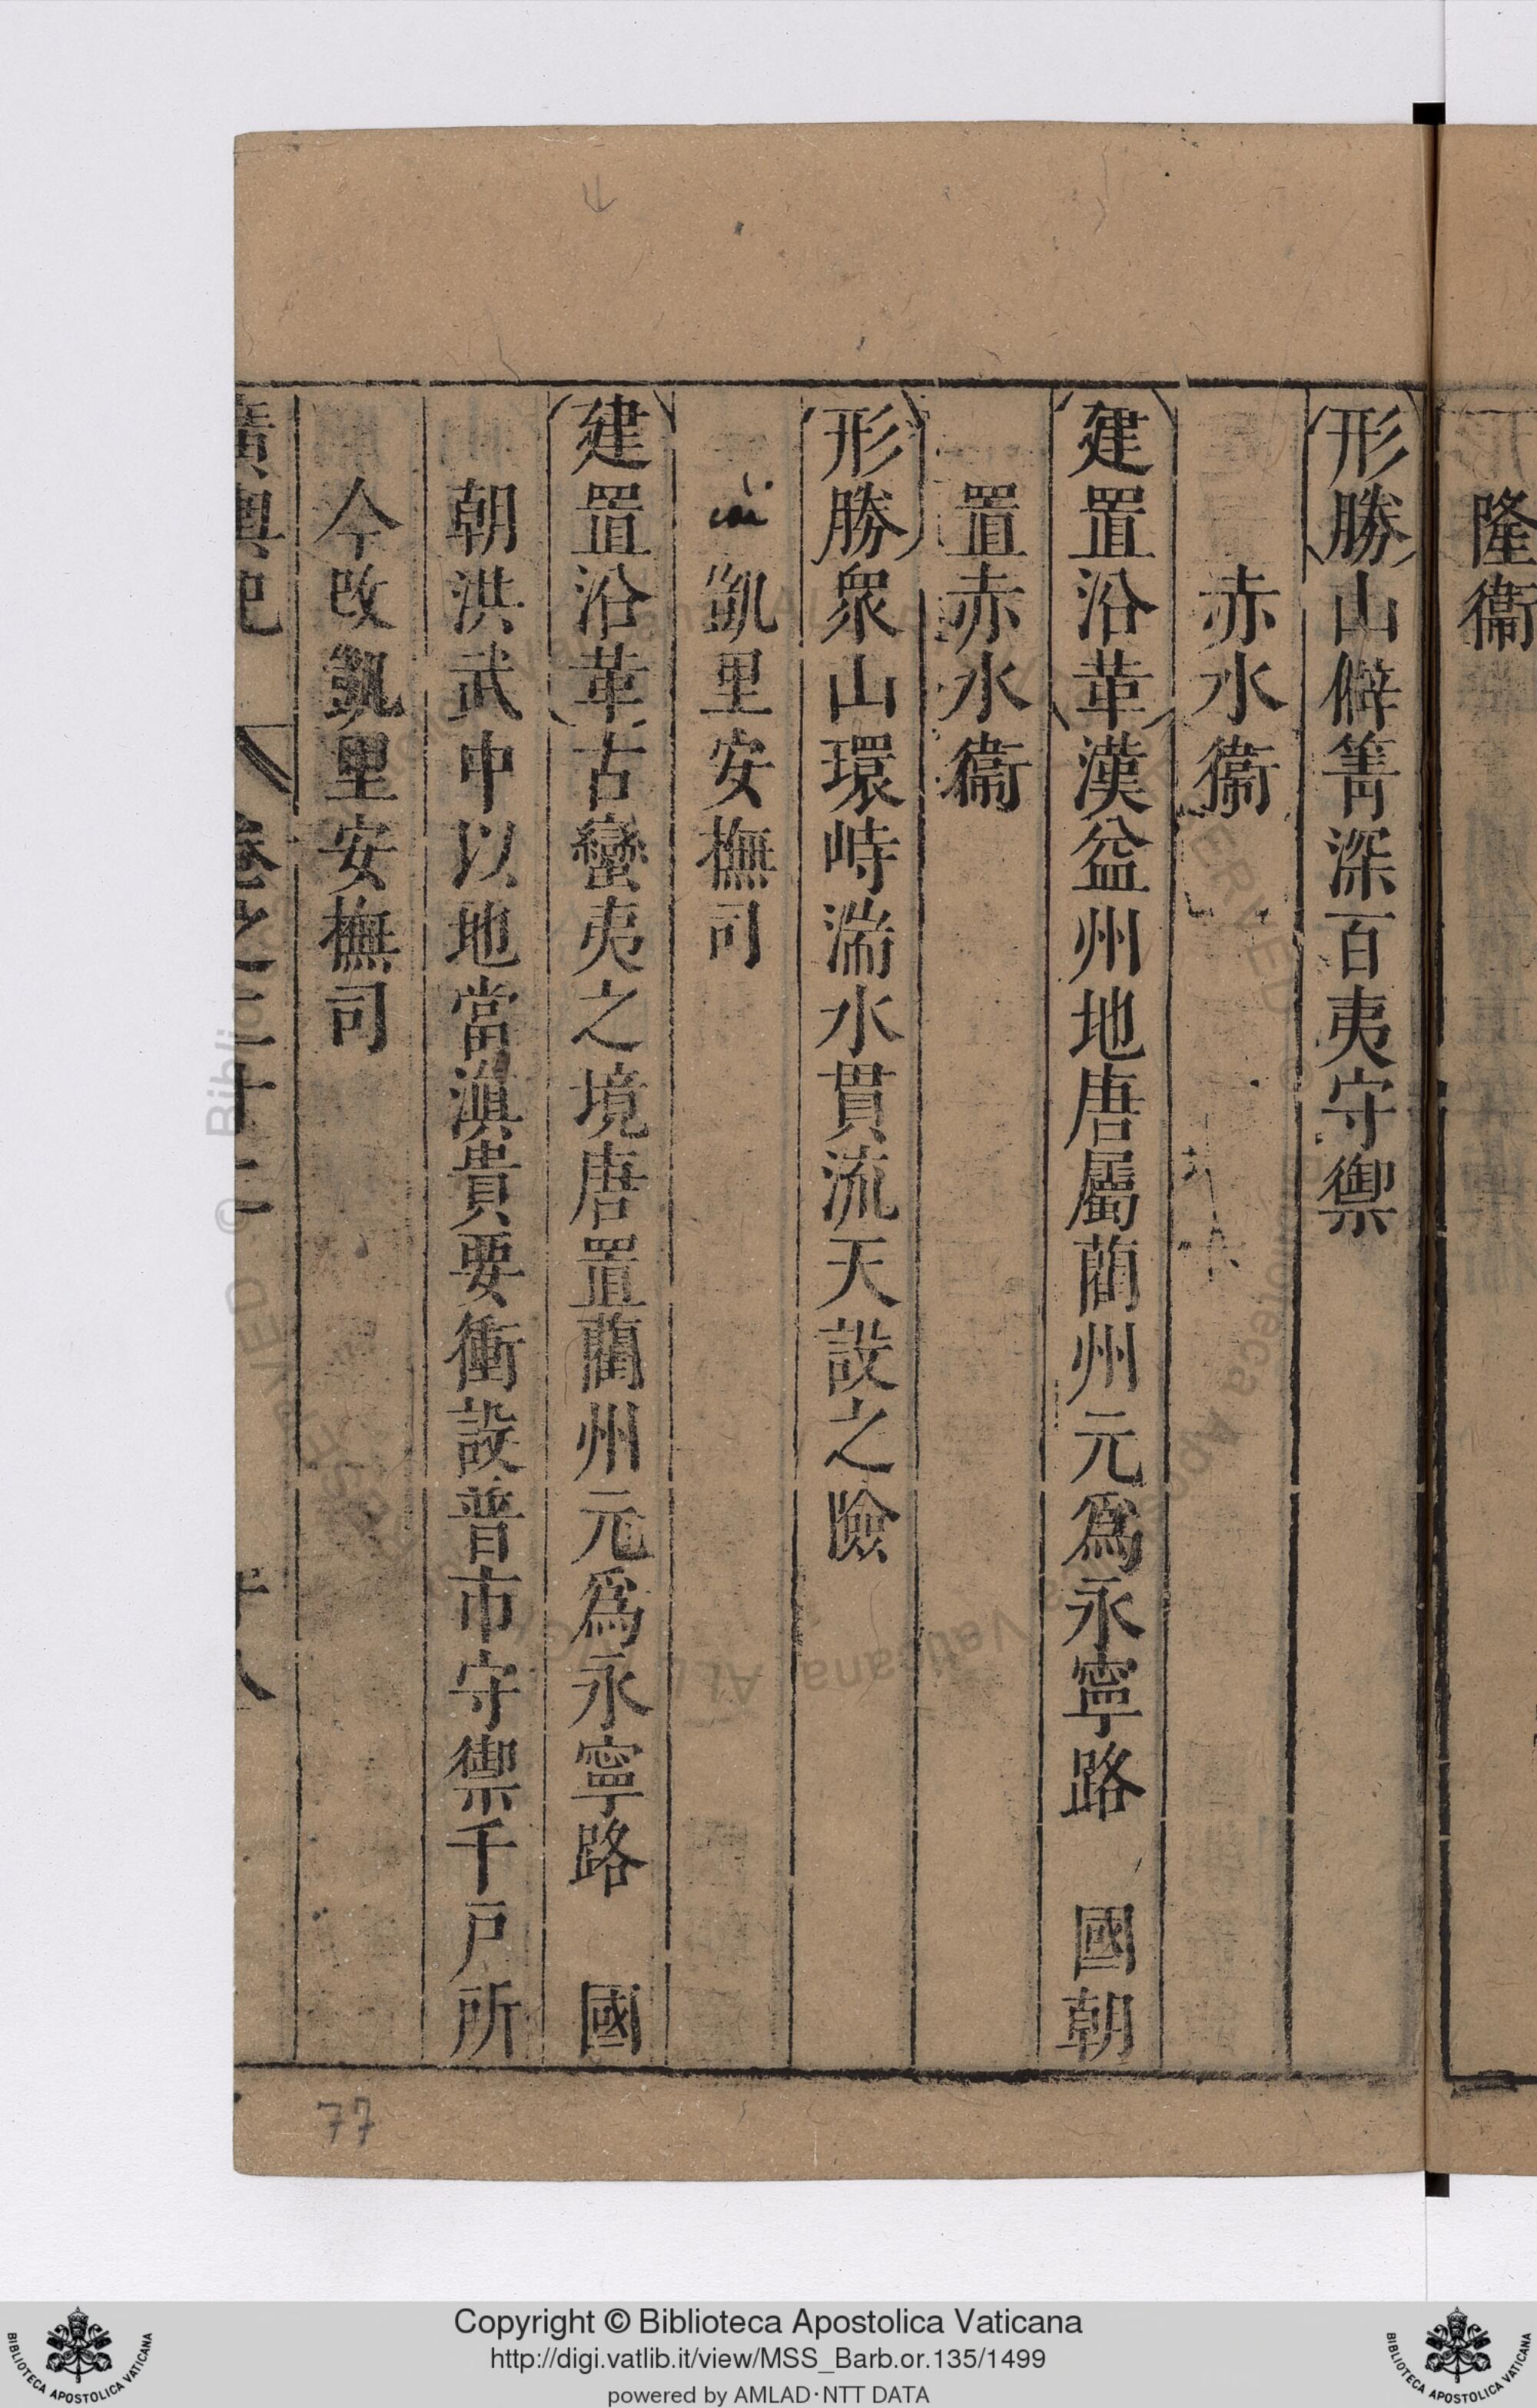 隆衞
形勝山僻箐深百夷守禦
赤水衞
建置沿革漢益州地唐屬藺州元爲永寧路 國朝
置赤水衞
形勝衆山環峙湍水貫流天設之險
凱里安撫司
建置沿革古蠻夷之境唐置藺州元爲永寧路 國
朝洪武中以地當滇貴要衝設普市守禦千戸所
今改凱里安撫司
廣輿記 卷之二十二 十八
77
Copyright © Biblioteca Apostolica Vaticana
http://digi.vatlib.it/view/MSS_Barb.or.135/1499
powered by AMLAD·NTT DATA
BIBLIOTECA APOSTOLICA VATICANA
BIBLIOTECA APOSTOLICA VATICANA